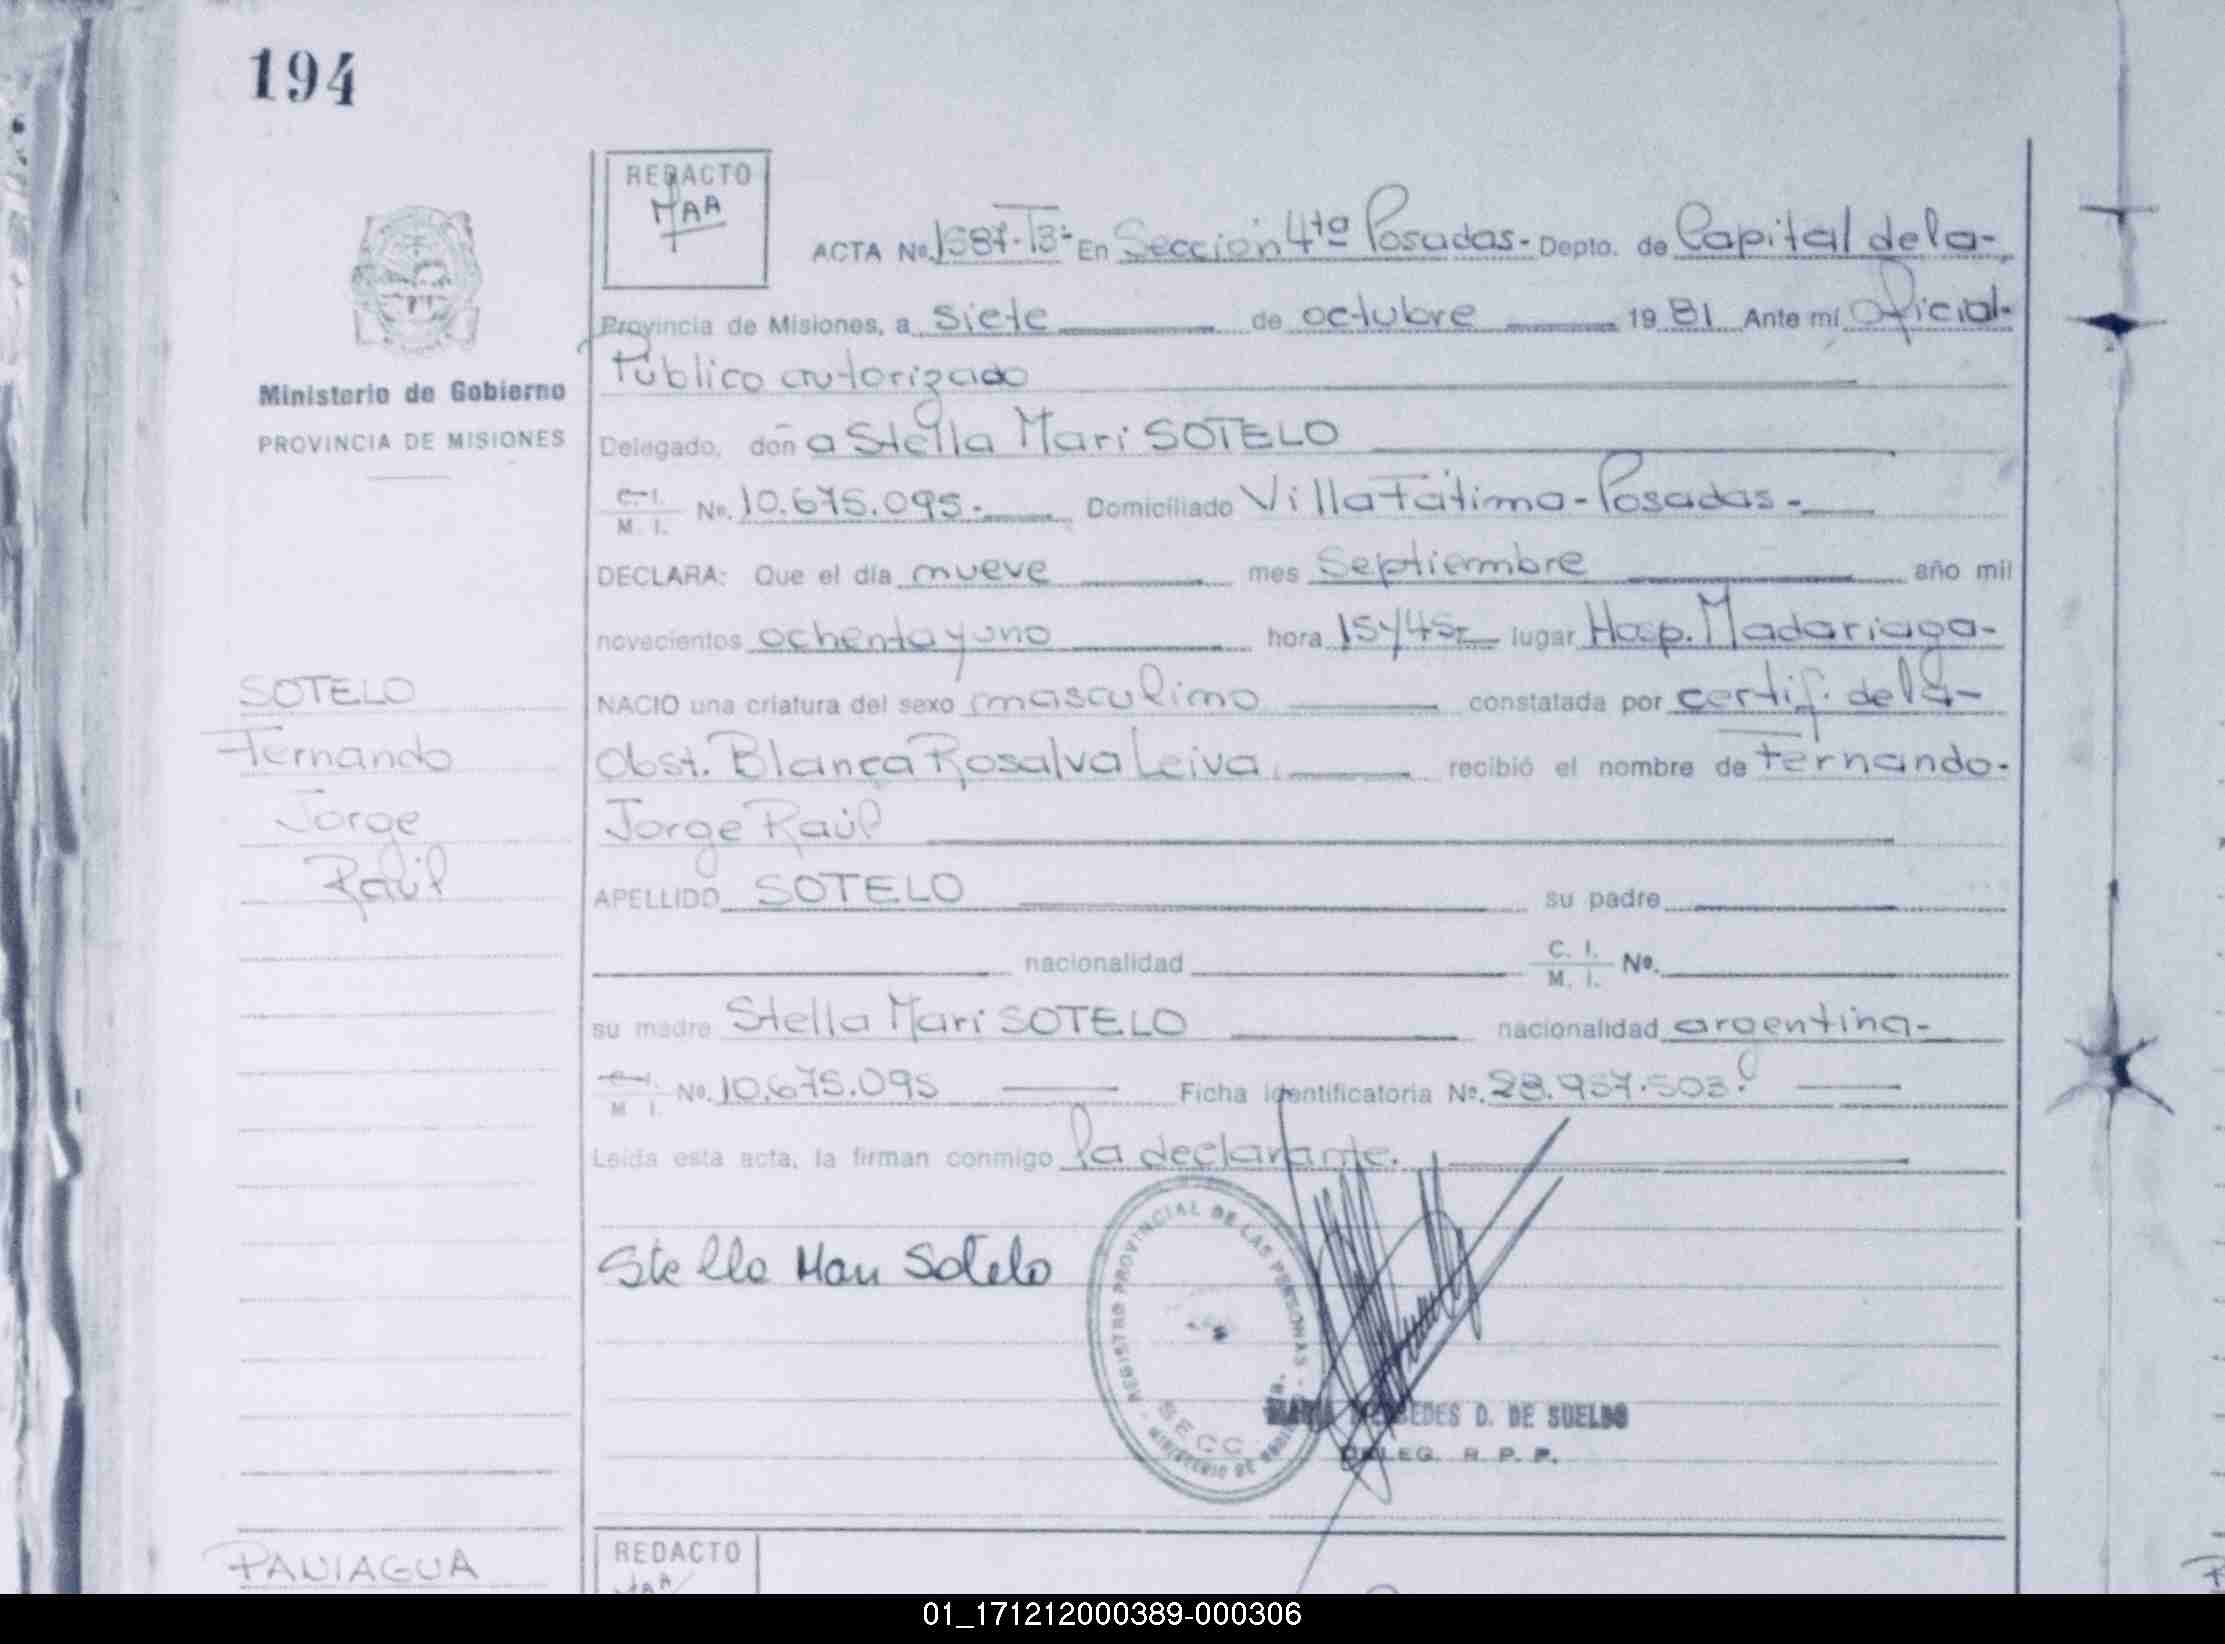 194
REDACTO
MAA
ACTA Nº 1587-T3- En Sección 4ta Posadas- Depto. de Capital de la-
Provincia de Misiones, a siete de octubre 1981 Ante mí Oficial-
Público autorizado
Ministerio de Gobierno
PROVINCIA DE MISIONES
Delegado, doña Stella Mari SOTELO
C. I. / M. I. Nº. 10.675.095.- Domiciliado Villa Fátima - Posadas-
DECLARA: Que el día nueve mes Septiembre año mil
novecientos ochenta y uno hora 15 y 45 lugar Hosp. Madariaga-
NACIO una criatura del sexo masculino constatada por certif. de la-
Obst. Blanca Rosalva Leiva recibió el nombre de Fernando-
Jorge Raúl
SOTELO
Fernando
Jorge
Raúl
APELLIDO SOTELO su padre
nacionalidad C. I. / M. I. Nº.
su madre Stella Mari SOTELO nacionalidad argentina-
C. I. / M. I. Nº. 10.675.095 Ficha identificatoria Nº. 28.957.503
Leída esta acta, la firman conmigo la declarante.
Stella Mari Sotelo
REGISTRO PROVINCIAL DE LAS PERSONAS - MINISTERIO DE
SECC.
MERCEDES D. DE SUELDO
DELEG. R. P. P.
PANIAGUA
REDACTO
MAA
01_171212000389-000306